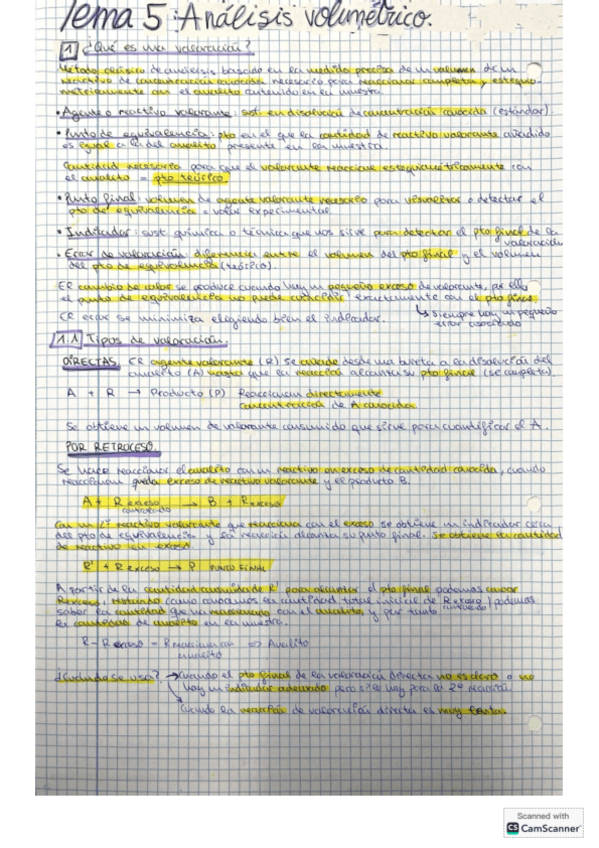 Tema 5: Análisis volumétrico.
1 ¿Qué es una valoración?
Método químico de análisis basado en la medida precisa de un volumen de un
reactivo de concentración conocida necesario para reaccionar completa y estequio-
métricamente con el analito contenido en la muestra.
• Agente o reactivo valorante: sust. en disolución de concentración conocida (estándar).
• Punto de equivalencia: pto en el que la cantidad de reactivo valorante añadido
es igual a la del analito presente en la muestra.
Cantidad necesaria para que el valorante reaccione estequiométricamente con
el analito = pto teórico
• Punto final: volumen de agente valorante necesario para visualizar o detectar el
pto de equivalencia = valor experimental.
• Indicador: sust. química o técnica que nos sirve para detectar el pto final de la
valoración
• Error de valoración: diferencia entre el volumen del pto final y el volumen
del pto de equivalencia (teórico).
El cambio de color se produce cuando hay un pequeño exceso de valorante, por ello
el punto de equivalencia no puede coincidir exactamente con el pto final.
El error se minimiza eligiendo bien el indicador. ↳ siempre hay un pequeño
error asociado
1.1 Tipos de valoración.
DIRECTAS. El agente valorante (R) se añade desde una bureta a la disolución del
analito (A) hasta que la reacción alcanza su pto final (se completa).
A + R → Producto (P) Reaccionan directamente
concentración de A conocida.
Se obtiene un volumen de valorante consumido que sirve para cuantificar el A.
POR RETROCESO.
Se hace reaccionar el analito con un reactivo en exceso de cantidad conocida, cuando
reaccionan queda exceso de reactivo valorante y el producto B.
A + R exceso → B + R exceso
controlado
Con un 2º reactivo valorante que reacciona con el exceso se obtiene un indicador cerca
del pto de equivalencia y la reacción alcanza su punto final. Se obtiene la cantidad
de reactivo en exceso.
R' + R exceso → P PUNTO FINAL
A partir de la cantidad consumida de R' para alcanzar el pto final podemos
R exceso, como conocemos la cantidad total inicial de R exceso podemos
controlado
saber la cantidad que ha reaccionado con el analito, y por tanto
la cantidad de analito en la muestra.
R - R exceso = R reaccionan ⇒ Analito
analito
¿Cuándo se usa? → Cuando el pto final de la valoración directa no es claro o no
hay un indicador adecuado pero si lo hay para la 2ª reacción.
Cuando la reacción de valoración directa es muy lenta.
Scanned with
CS CamScanner